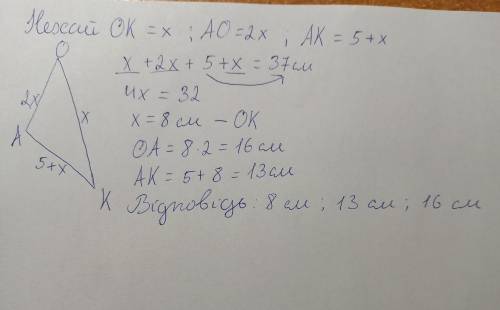 Нехай OK = x ; AO = 2x ; AK = 5 + x
x + 2x + 5 + x = 37 см
4x = 32
x = 8 см – OK
OA = 8 · 2 = 16 см
AK = 5 + 8 = 13 см
Відповідь: 8 см ; 13 см ; 16 см
O
2x
x
A
5+x
K